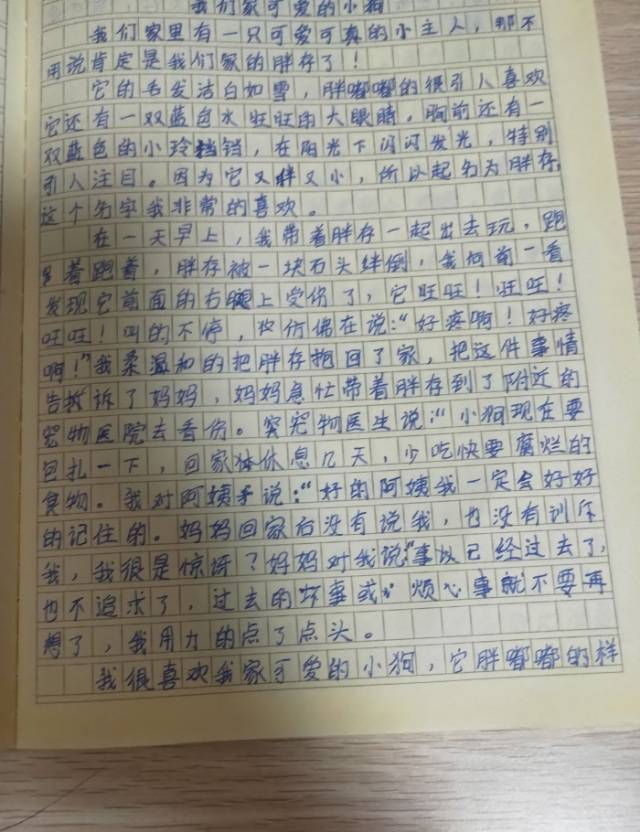 我们家可爱的小狗
我们家里有一只可爱可真的小主人，那不
用说肯定是我们家的胖存了！
它的毛发洁白如雪，胖嘟嘟的很引人喜欢
它还有一双蓝色水旺旺的大眼睛。胸前还有一
双蓝色的小玲铛，在阳光下闪闪发光，特别
引人注目。因为它又胖又小，所以起名为胖存，
这个名字我非常的喜欢。
在一天早上，我带着胖存一起出去玩，跑
着跑着，胖存被一块石头绊倒，我向前一看
发现它前面的右腿上受伤了，它旺旺！旺旺！
旺旺！叫的不停，仿佛在说："好疼啊！好疼
啊！"我柔温和的把胖存抱回了家，把这件事情
告诉了妈妈，妈妈急忙带着胖存到了附近的
宠物医院去看伤。宠物医生说："小狗现在要
包扎一下，回家休息几天，少吃快要腐烂的
食物。我对阿姨说："好的阿姨我一定会好好
的记住的。妈妈回家后没有说我，也没有训斥
我，我很是惊讶？妈妈对我说："事以已经过去了，
也不追求了，过去的坏事或烦心事就不要再
想了，我用力的点了点头。
我很喜欢我家可爱的小狗，它胖嘟嘟的样